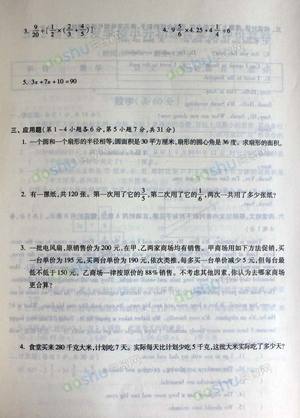 3. 9/20÷[1/2×(2/5+4/5)] 4. 9 5/6×4.25+4 1/4÷6
5. 3a+7a+10=90
三、应用题(第1—4小题各6分,第5小题7分,共31分)
1. 一个圆和一个扇形的半径相等,圆面积是30平方厘米,扇形的圆心角是36度。求扇形的面积。
2. 有一摞纸,共120张。第一次用了它的3/5,第二次用了它的1/6,两次一共用了多少张纸?
3. 一批电风扇,原销售价为200元,在甲、乙两家商场均有销售。甲商场用如下方法促销,买
一台单价为195元,买两台单价为190元,依次类推,每多买一台单价减少5元,但每台最
低不低于150元。乙商场一律按原价的88%销售。不考虑其他因素,你认为去哪家商场
更合算?
4. 食堂买来280千克大米,计划吃7天。实际每天比计划少吃5千克,这批大米实际吃了多少天?
aoshu